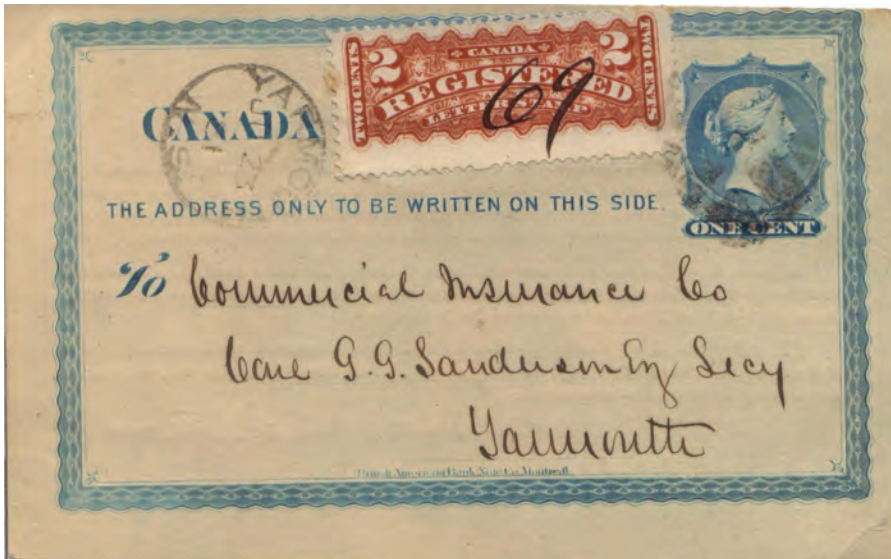 TWO CENTS 2 CANADA 2 TWO CENTS
REGISTERED
LETTER STAMP
69
CANADA
THE ADDRESS ONLY TO BE WRITTEN ON THIS SIDE.
ONE CENT
To Commercial Insurance Co
Care G. G. Sanderson Esq Secy
Yarmouth
British American Bank Note Co. Montreal.